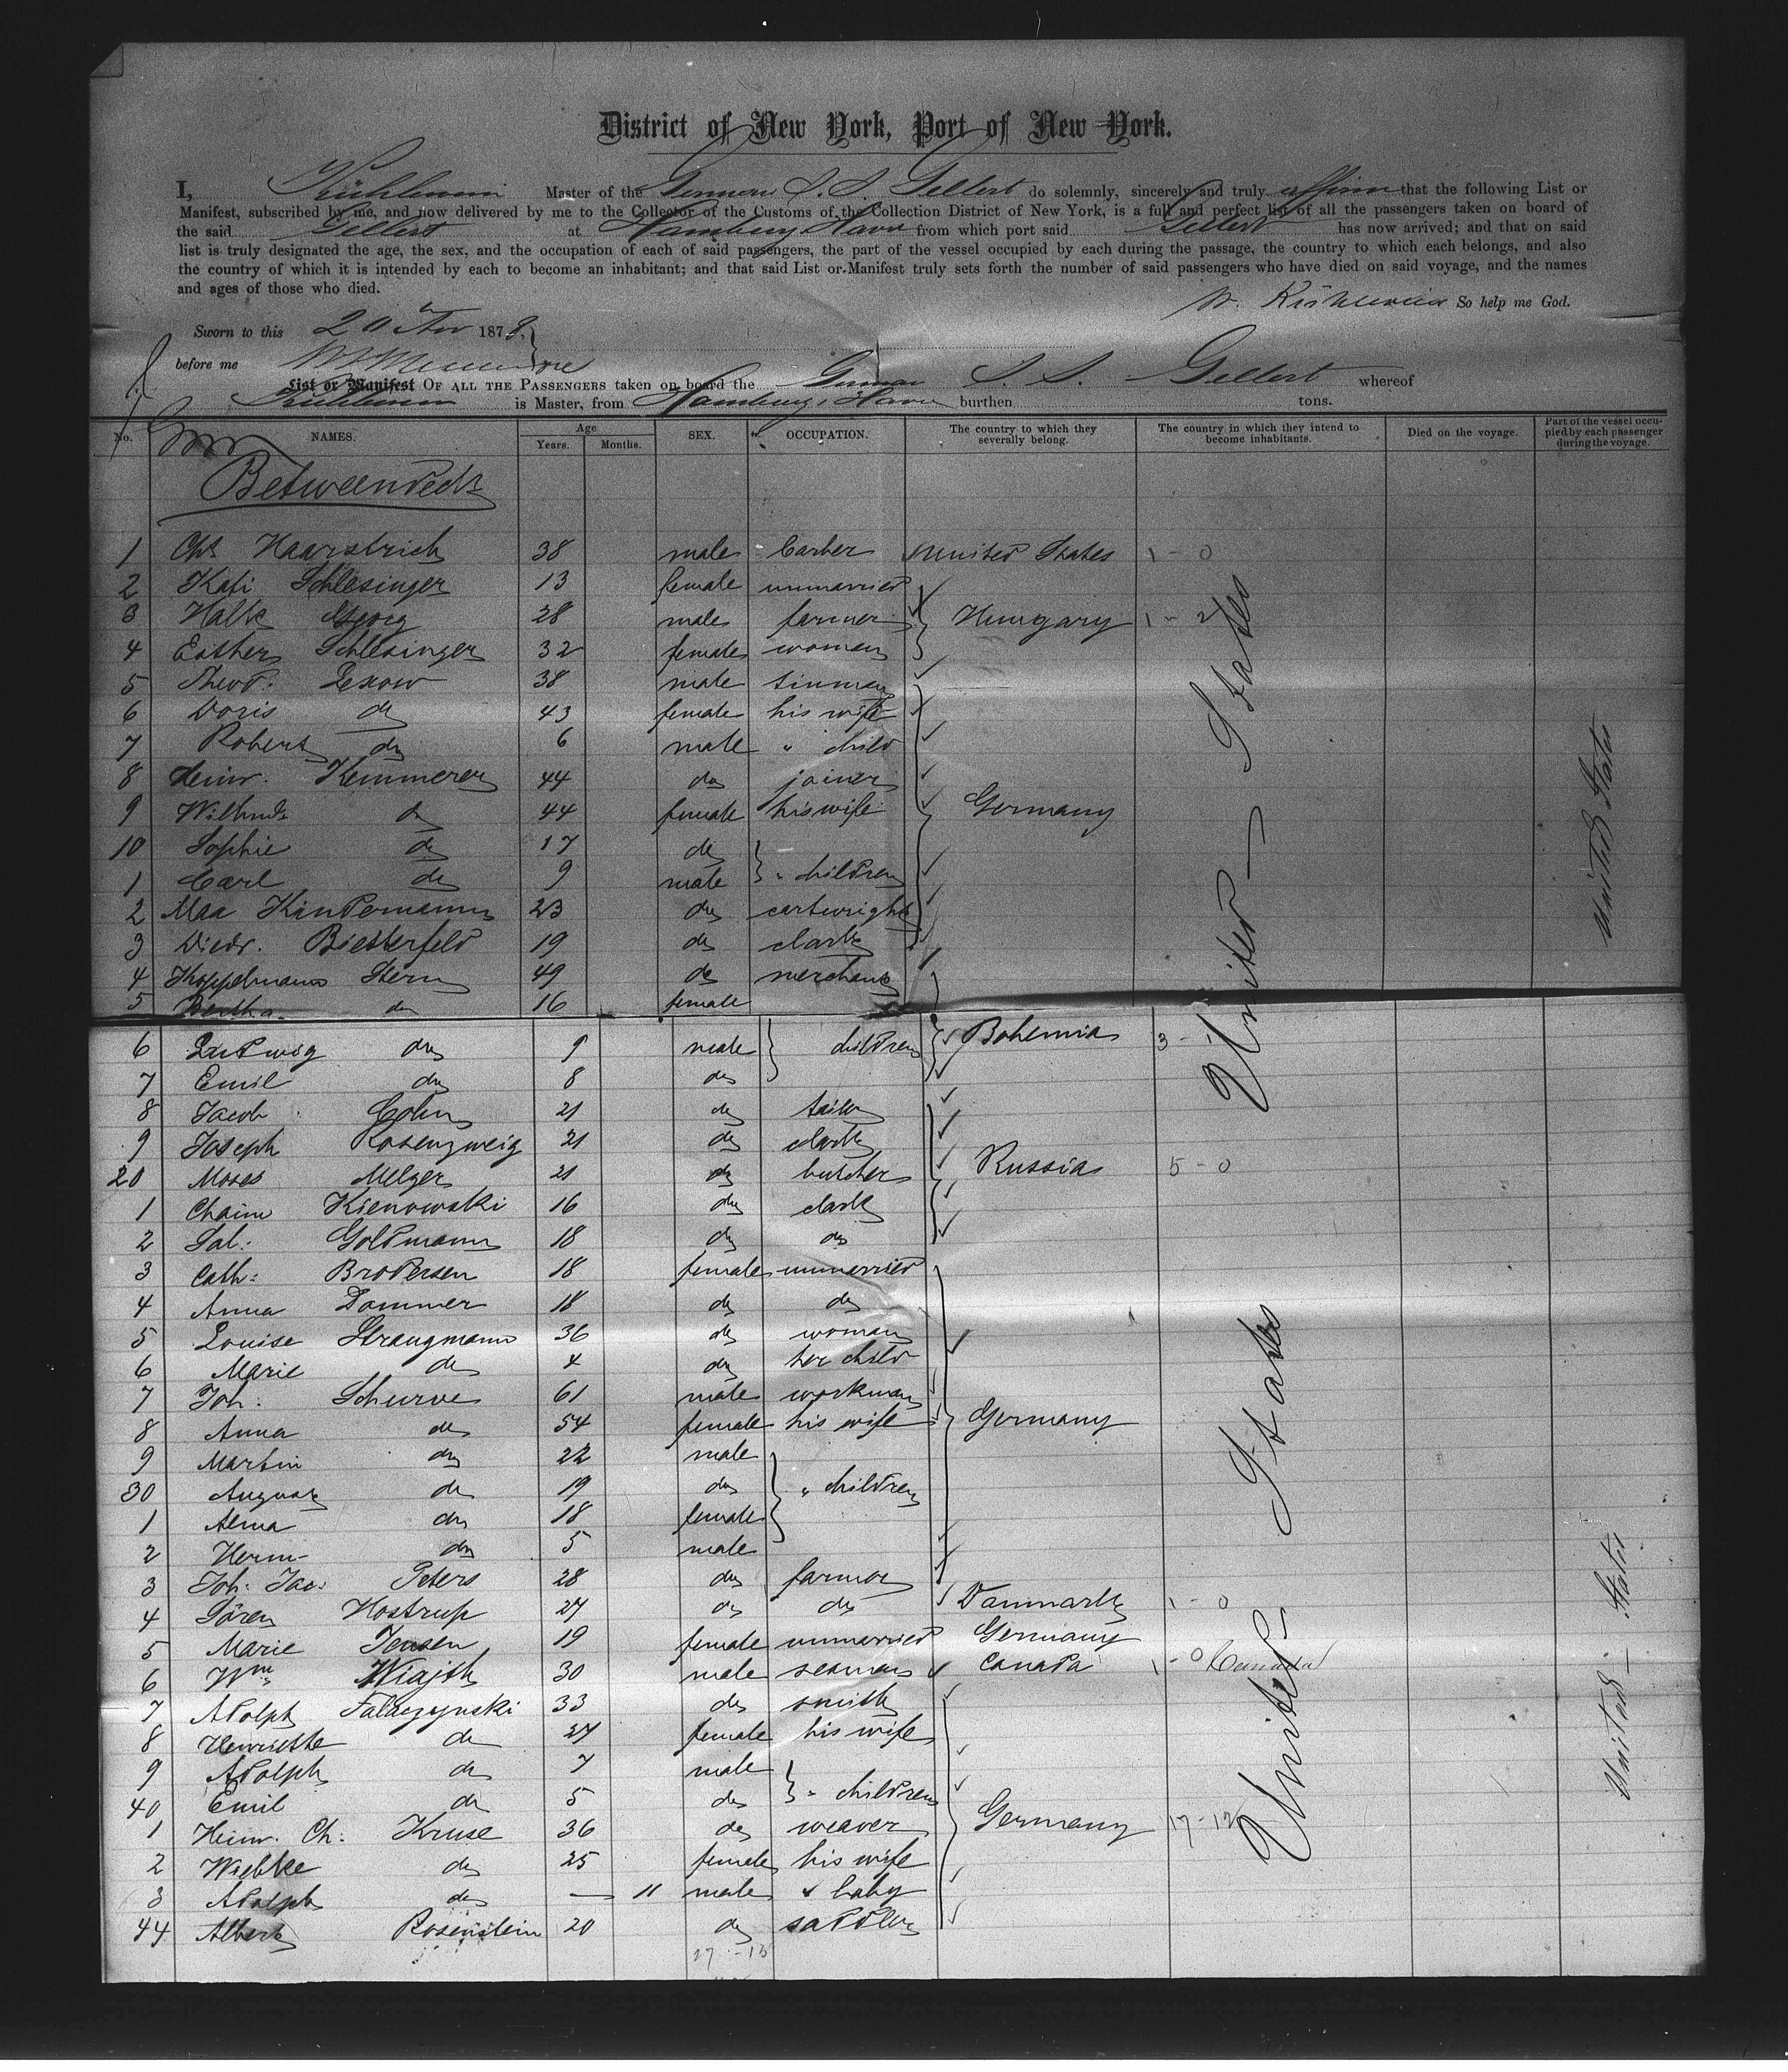 District of New York, Port of New York.
I, Kühlewein Master of the German S. S. Gellert do solemnly, sincerely and truly affirm that the following List or
Manifest, subscribed by me, and now delivered by me to the Collector of the Customs of the Collection District of New York, is a full and perfect list of all the passengers taken on board of
the said Gellert at Hamburg, Havre from which port said Gellert has now arrived; and that on said
list is truly designated the age, the sex, and the occupation of each of said passengers, the part of the vessel occupied by each during the passage, the country to which each belongs, and also
the country of which it is intended by each to become an inhabitant; and that said List or Manifest truly sets forth the number of said passengers who have died on said voyage, and the names
and ages of those who died.
So help me God.
Sworn to this 20 Nov 1878.
before me
List or Manifest OF ALL THE PASSENGERS taken on board the German S. S. Gellert whereof
Kühlewein is Master, from Hamburg, Havre burthen tons.
No. NAMES. Age Years. Months. SEX. OCCUPATION. The country to which they severally belong. The country in which they intend to become inhabitants. Died on the voyage. Part of the vessel occupied by each passenger during the voyage.
Betweendeck
1 Chs Haarstrich 38 male barber United States 1 - 0
2 Kati Schlesinger 13 female unmarried
3 Halk Georg 28 male farmer Hungary 1 - 2
4 Esther Schlesinger 32 female woman
5 Theod. Lexow 38 male tinman
6 Doris do 43 female his wife
7 Robert do 6 male " child
8 Heinr. Kemmerer 44 do joiner
9 Wilhmle do 44 female his wife Germany
10 Sophie do 17 do
1 Carl do 9 male " children
2 Max Kindermann 23 do cartwright
3 Diedr. Biesterfeld 19 do clark
4 Koppelmann Stern 49 do merchant
5 Bertha do 16 female
6 Ludwig do 9 male children Bohemia 3 -
7 Emil do 8 do
8 Jacob Cohn 21 do tailor
9 Joseph Rosenzweig 21 do clark
20 Moses Melzer 21 do butcher Russia 5 - 0
1 Chaim Kienowski 16 do clark
2 Sal: Goldmann 18 do do
3 Cath: Brodersen 18 female unmarried
4 Anna Dammer 18 do do
5 Louise Strangmann 36 do woman
6 Marie do 4 do her child
7 Joh: Schurve 61 male workman
8 Anna do 54 female his wife Germany
9 Martin do 22 male
30 August do 19 do " children
1 Alma do 18 female
2 Herm. do 5 male
3 Joh. Jac. Peters 28 do farmer
4 Sören Hostrup 27 do do Danmark 1 - 0
5 Marie Jensen 19 female unmarried Germany
6 Wm Wiajth 30 male seaman Canada 1 - 0 Canada
7 Adolph Falaczynski 33 do smith
8 Henriette do 27 female his wife
9 Adolph do 7 male
40 Emil do 5 do " children
1 Heinr. Ch: Kruse 36 do weaver Germany 17 - 12
2 Wiebke do 25 female his wife
3 Adolph do — 11 male " baby
44 Albert Rosenstein 20 do saddler
27 - 13
United States
United States
United States
United States